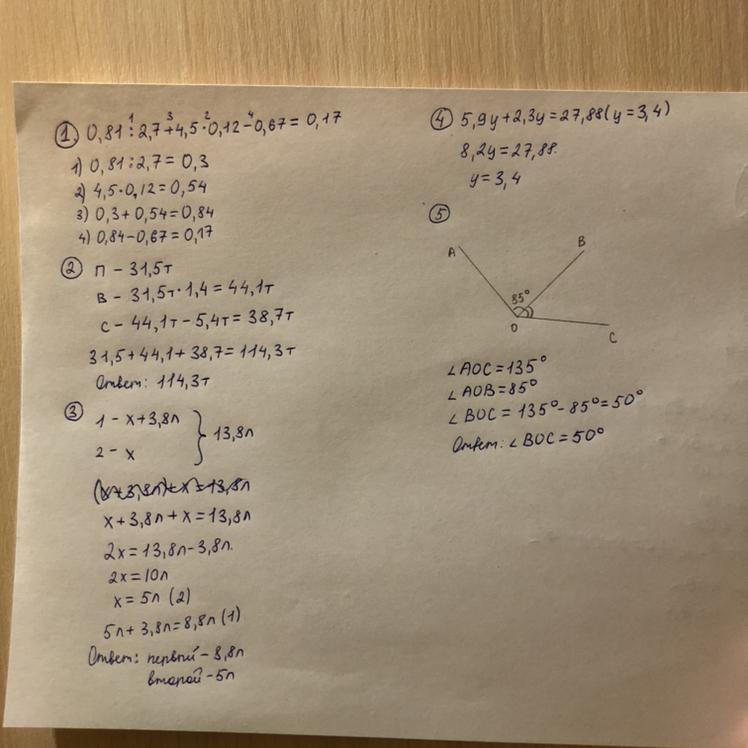 ① 0,81:2,7+4,5·0,12-0,67=0,17
1) 0,81:2,7=0,3
2) 4,5·0,12=0,54
3) 0,3+0,54=0,84
4) 0,84-0,67=0,17
② П - 31,5т
В - 31,5т·1,4=44,1т
С - 44,1т-5,4т=38,7т
31,5+44,1+38,7=114,3т
Ответ: 114,3т
③ 1 - х+3,8л
2 - х
13,8л
х+3,8л+х=13,8л
2х=13,8л-3,8л.
2х=10л
х=5л (2)
5л+3,8л=8,8л (1)
Ответ: первый - 8,8л
второй - 5л
④ 5,9у+2,3у=27,88(у=3,4)
8,2у=27,88.
у=3,4
⑤
А
В
85°
О
С
∠АОС=135°
∠АОВ=85°
∠ВОС=135°-85°=50°
Ответ: ∠ВОС=50°